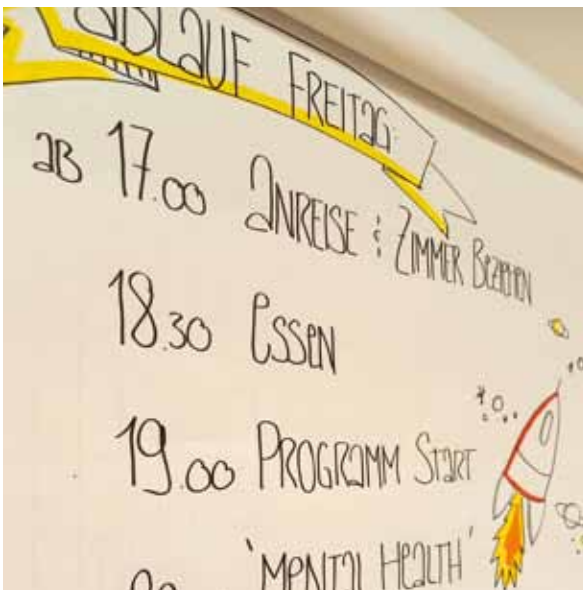 ABLAUF FREITAG
AB 17.00 ANREISE & ZIMMER BEZIEHEN
18.30 ESSEN
19.00 PROGRAMM START
'MENTAL HEALTH'